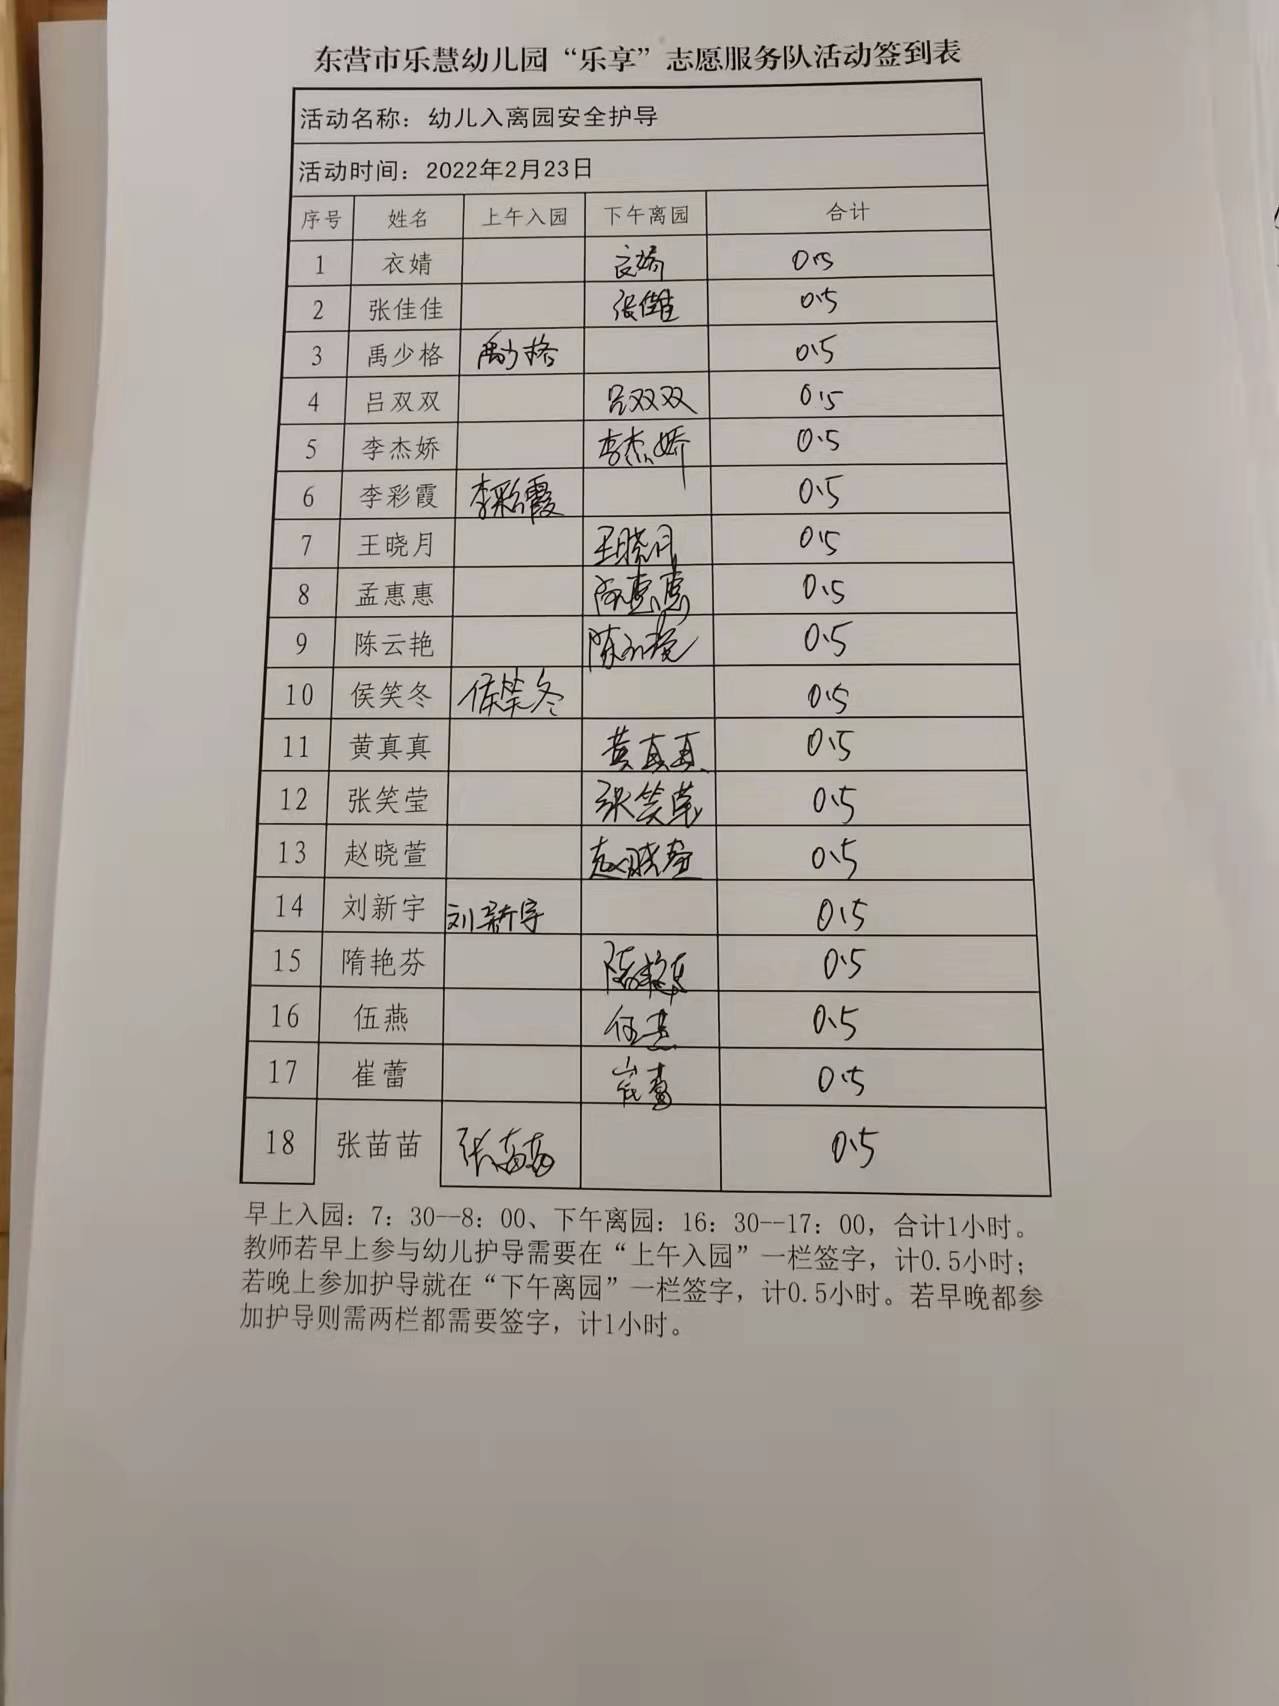 东营市乐慧幼儿园“乐享”志愿服务队活动签到表
活动名称：幼儿入离园安全护导
活动时间：2022年2月23日
序号 姓名 上午入园 下午离园 合计
1 衣婧 衣婧 0.5
2 张佳佳 张佳佳 0.5
3 禹少格 禹少格 0.5
4 吕双双 吕双双 0.5
5 李杰娇 李杰娇 0.5
6 李彩霞 李彩霞 0.5
7 王晓月 王晓月 0.5
8 孟惠惠 孟惠惠 0.5
9 陈云艳 陈云艳 0.5
10 侯笑冬 侯笑冬 0.5
11 黄真真 黄真真 0.5
12 张笑莹 张笑莹 0.5
13 赵晓萱 赵晓萱 0.5
14 刘新宇 刘新宇 0.5
15 隋艳芬 隋艳芬 0.5
16 伍燕 伍燕 0.5
17 崔蕾 崔蕾 0.5
18 张苗苗 张苗苗 0.5
早上入园：7：30—8：00、下午离园：16：30—17：00，合计1小时。
教师若早上参与幼儿护导需要在“上午入园”一栏签字，计0.5小时；
若晚上参加护导就在“下午离园”一栏签字，计0.5小时。若早晚都参
加护导则需两栏都需要签字，计1小时。